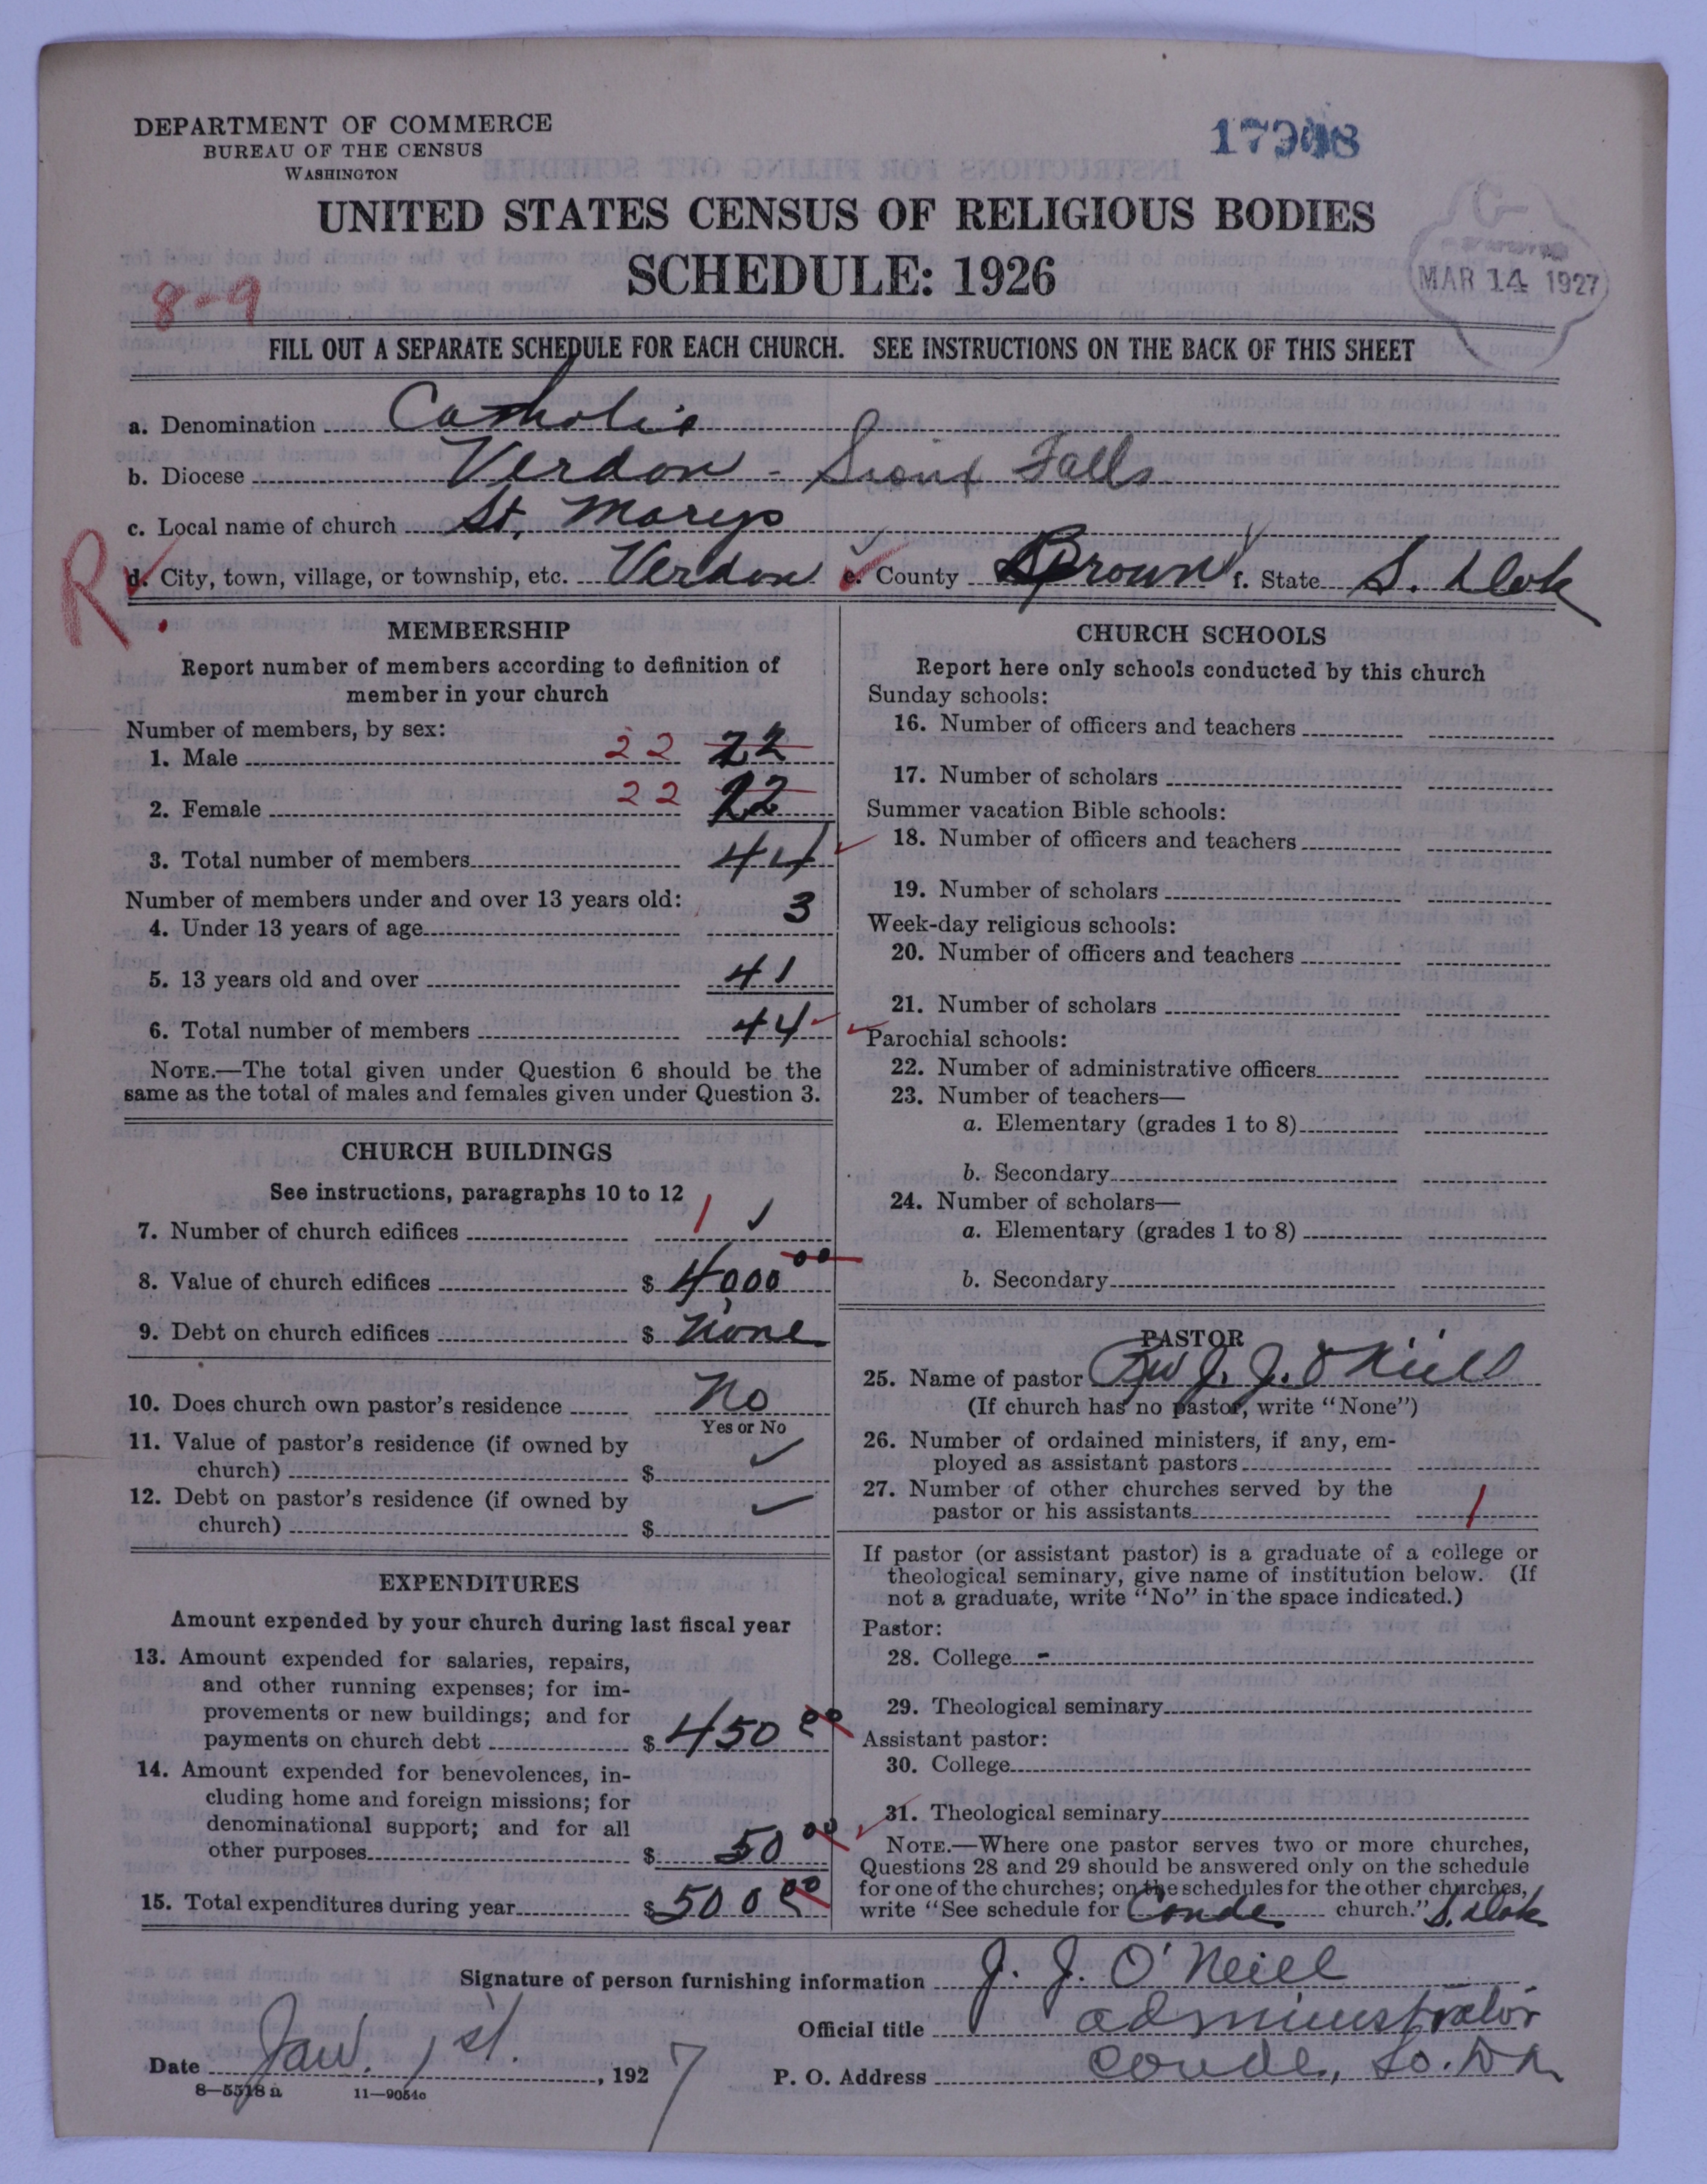 DEPARTMENT OF COMMERCE
BUREAU OF THE CENSUS
WASHINGTON
UNITED STATES CENSUS OF RELIGIOUS BODIES
SCHEDULE: 1926
MAR 14 1927
8-9
FILL OUT A SEPARATE SCHEDULE FOR EACH CHURCH. SEE INSTRUCTIONS ON THE BACK OF THIS SHEET
a. Denomination Catholic
b. Diocese Verdon - Sioux Falls
c. Local name of church St, Marys
R
d. City, town, village, or township, etc. Verdon e. County Brown f. State S. Dak
MEMBERSHIP
Report number of members according to definition of
member in your church
Number of members, by sex:
1. Male 22 22
2. Female 22 22
3. Total number of members 44
Number of members under and over 13 years old:
4. Under 13 years of age 3
5. 13 years old and over 41
6. Total number of members 44
NOTE.—The total given under Question 6 should be the
same as the total of males and females given under Question 3.
CHURCH BUILDINGS
See instructions, paragraphs 10 to 12
7. Number of church edifices 1 ✓
8. Value of church edifices $ 4000 00
9. Debt on church edifices $ None
10. Does church own pastor's residence No
Yes or No
11. Value of pastor's residence (if owned by
church) $ ✓
12. Debt on pastor's residence (if owned by
church) $ ✓
EXPENDITURES
Amount expended by your church during last fiscal year
13. Amount expended for salaries, repairs,
and other running expenses; for im-
provements or new buildings; and for
payments on church debt $ 450 00
14. Amount expended for benevolences, in-
cluding home and foreign missions; for
denominational support; and for all
other purposes $ 50 00
15. Total expenditures during year $ 500 00
CHURCH SCHOOLS
Report here only schools conducted by this church
Sunday schools:
16. Number of officers and teachers
17. Number of scholars
Summer vacation Bible schools:
18. Number of officers and teachers
19. Number of scholars
Week-day religious schools:
20. Number of officers and teachers
21. Number of scholars
Parochial schools:
22. Number of administrative officers
23. Number of teachers—
a. Elementary (grades 1 to 8)
b. Secondary
24. Number of scholars—
a. Elementary (grades 1 to 8)
b. Secondary
PASTOR
25. Name of pastor Rev J. J. O'Neill
(If church has no pastor, write "None")
26. Number of ordained ministers, if any, em-
ployed as assistant pastors
27. Number of other churches served by the
pastor or his assistants 1
If pastor (or assistant pastor) is a graduate of a college or
theological seminary, give name of institution below. (If
not a graduate, write "No" in the space indicated.)
Pastor:
28. College -
29. Theological seminary
Assistant pastor:
30. College
31. Theological seminary
NOTE.—Where one pastor serves two or more churches,
Questions 28 and 29 should be answered only on the schedule
for one of the churches; on the schedules for the other churches,
write "See schedule for Conde church." S. Dak
Signature of person furnishing information J. J. O'Neill
Official title administrator
Date Jan. 1st. , 1927
P. O. Address Conde, So. Dk
8—5518 a 11—9051c